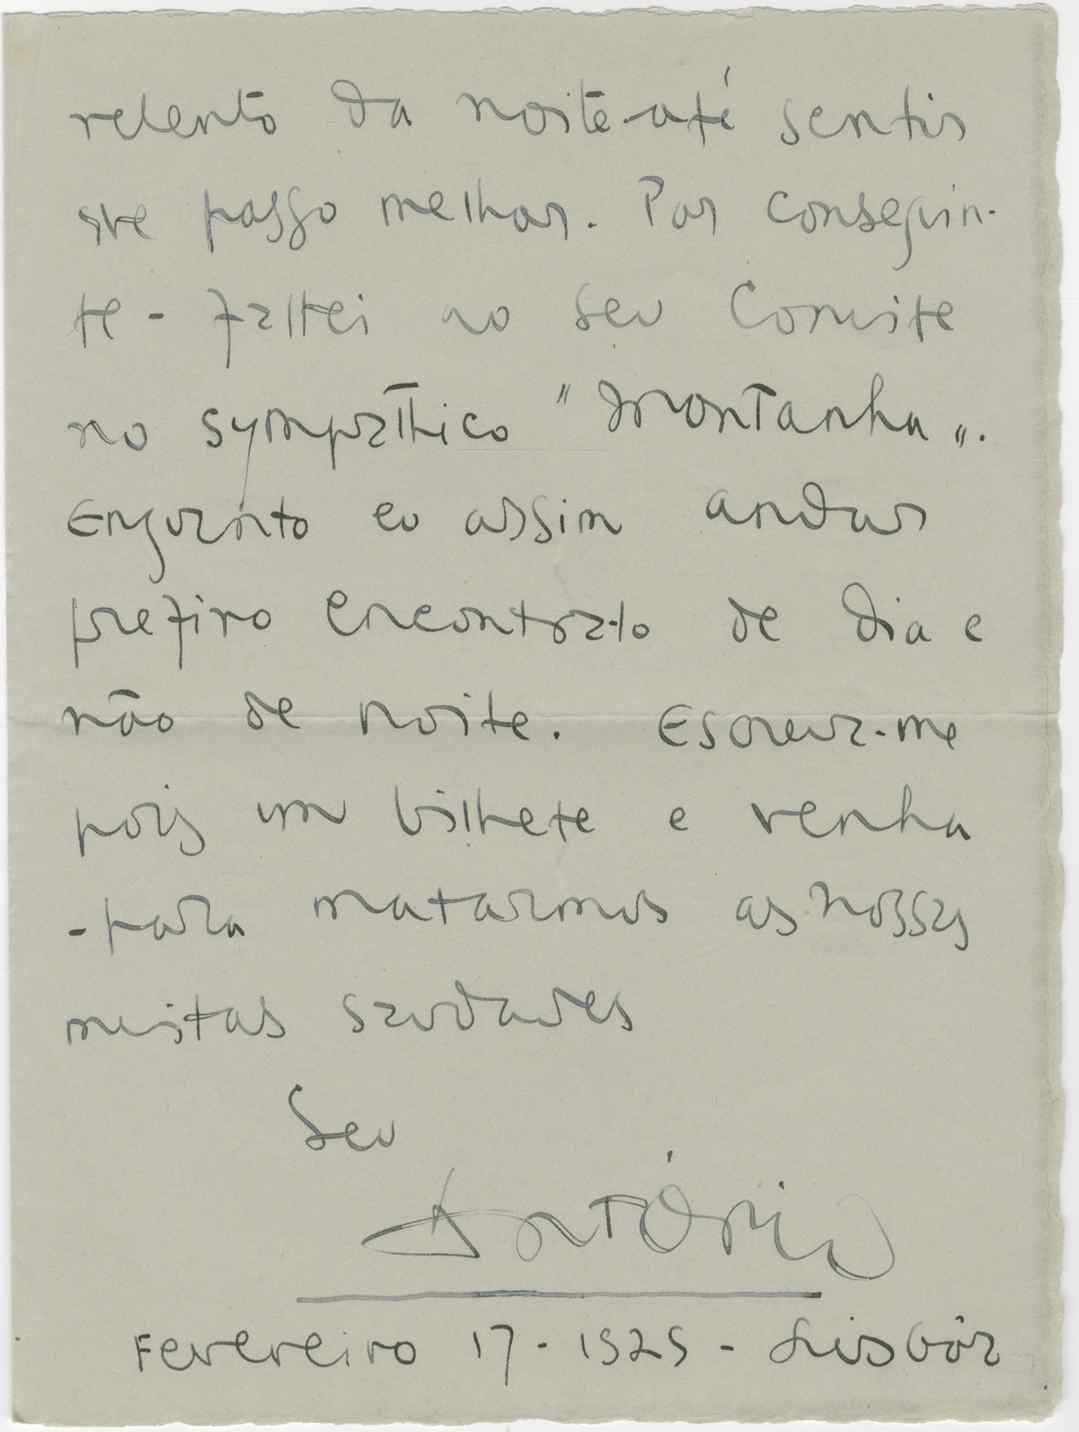 relento da noite até sentir
que passo melhor. Por conseguin-
te - faltei ao seu Convite
no sympáthico "Montanha".
Enquanto eu assim andar
prefiro encontra-lo de dia e
não de noite. Escreva-me
pois um bilhete e venha
- para matarmos as nossas
muitas saudades
Seu
António
Fevereiro 17 - 1925 - Lisbôa